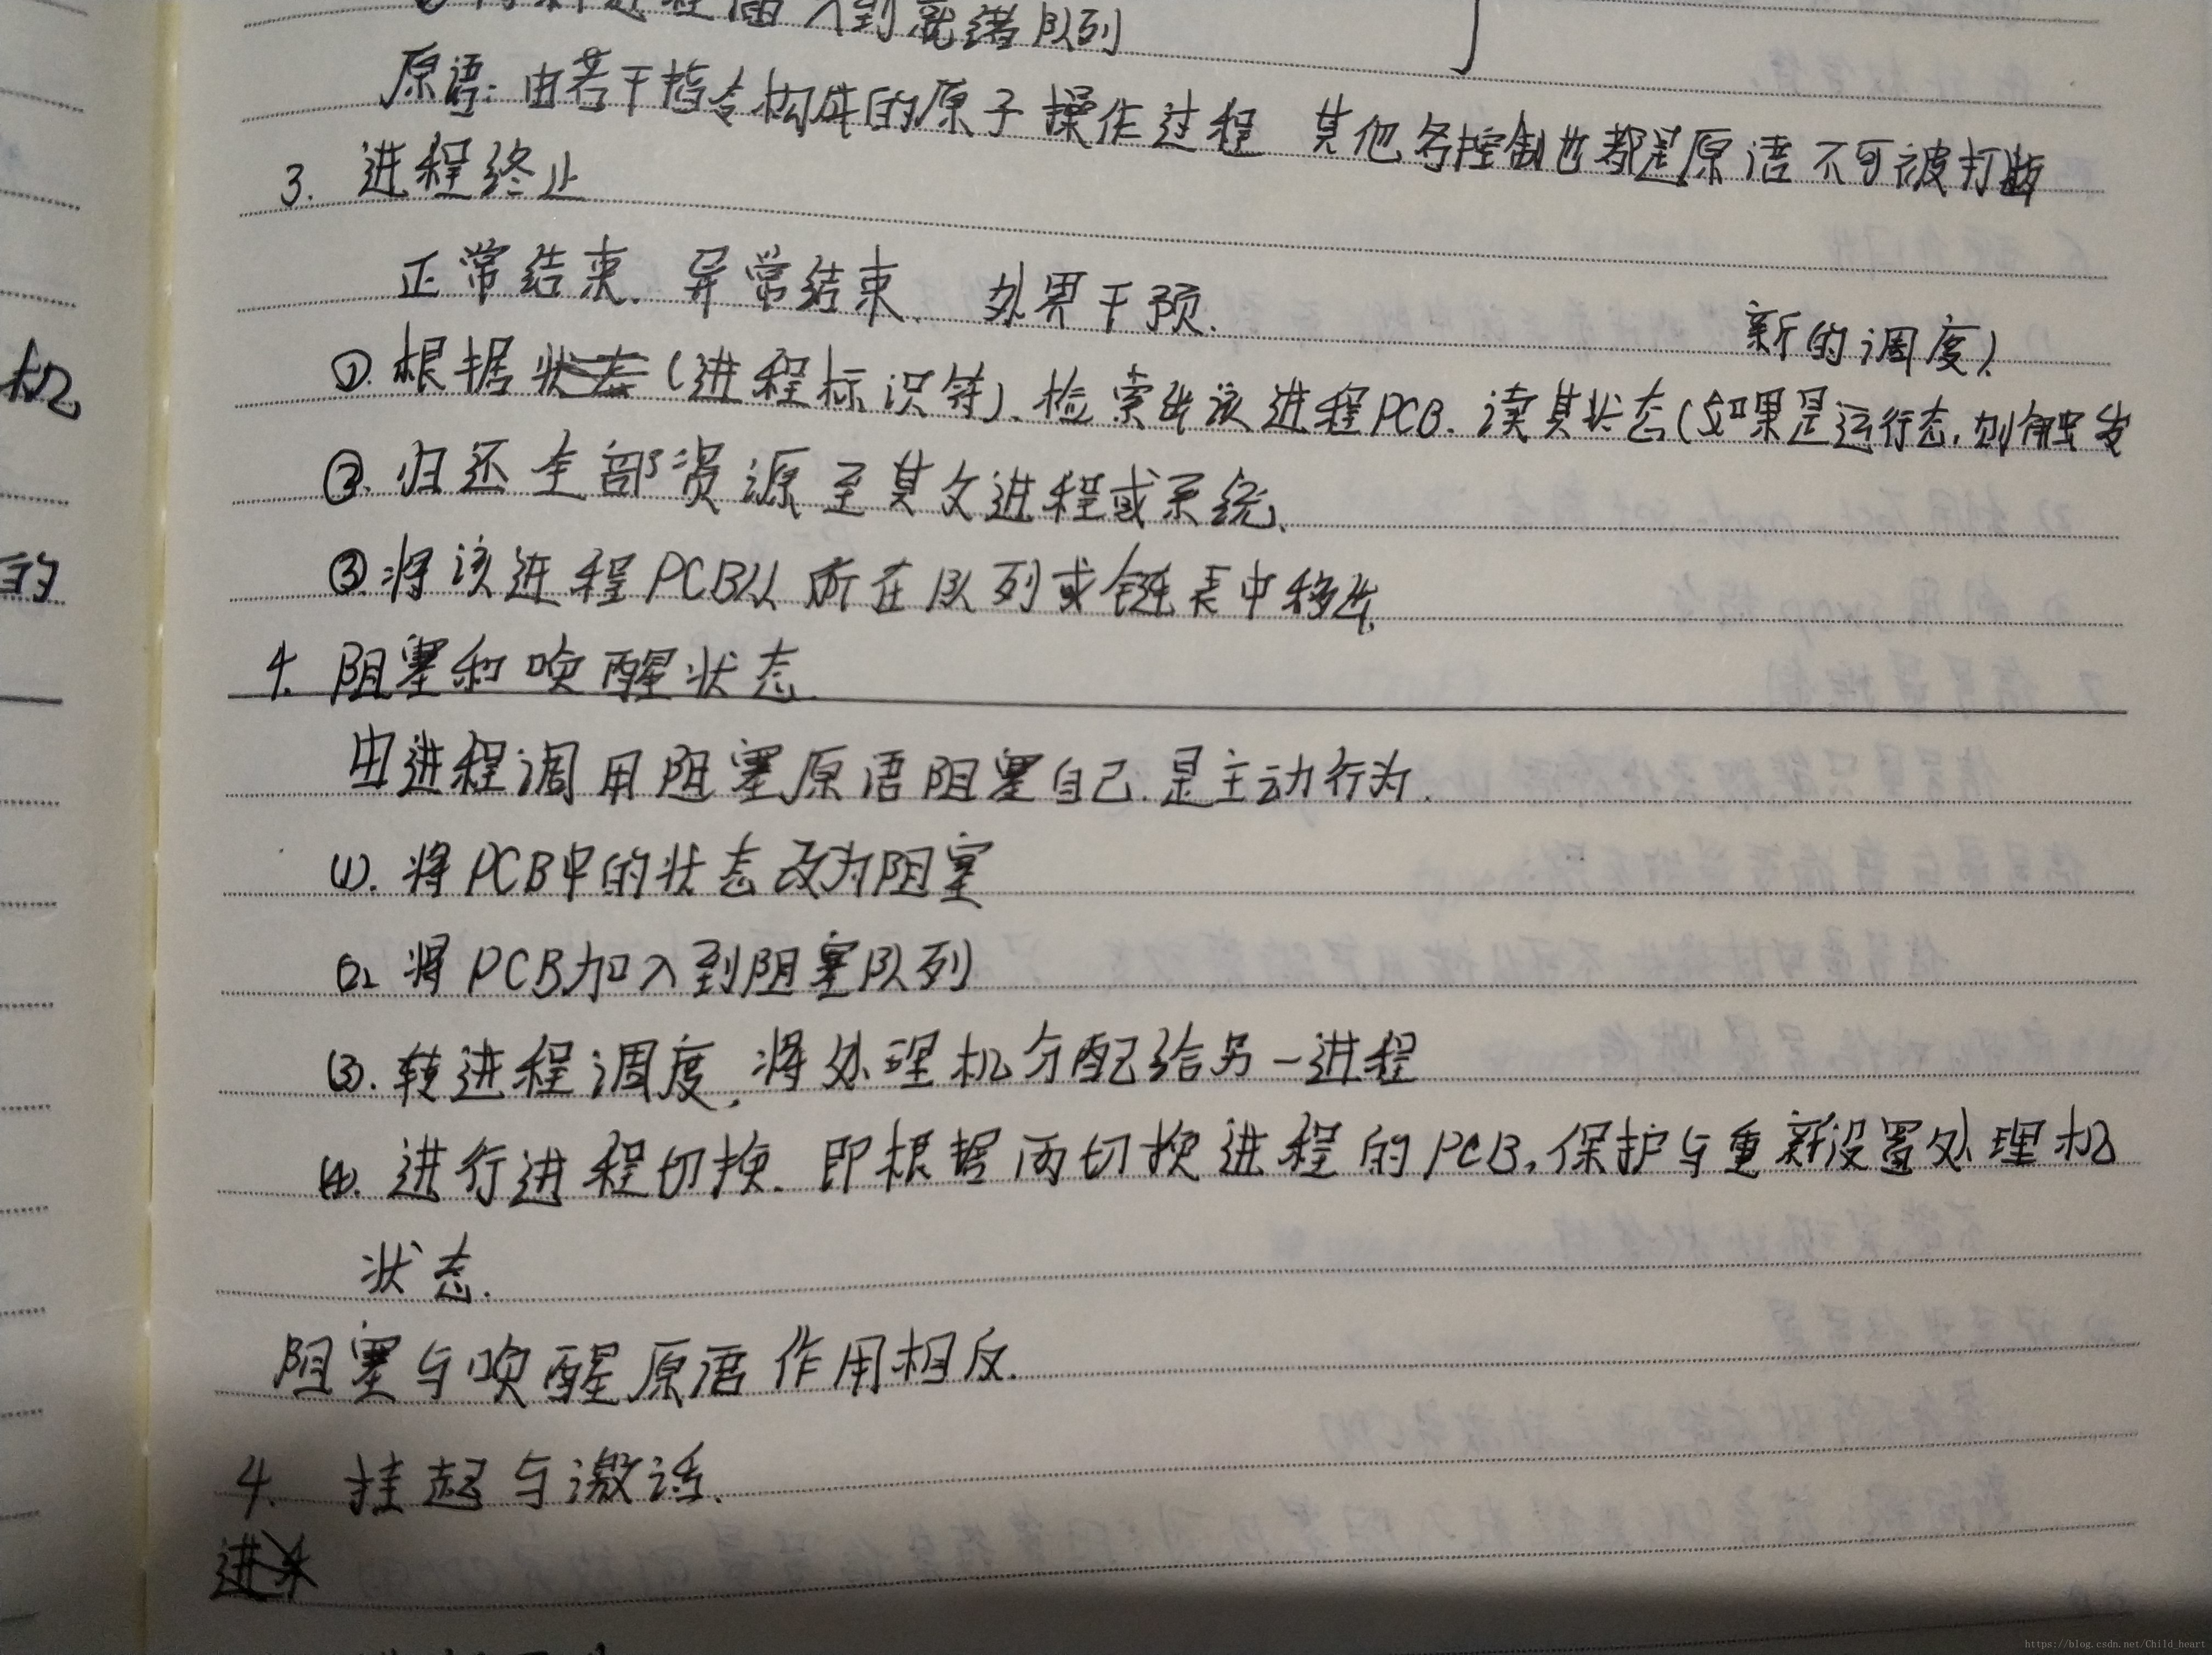 将新进程插入到就绪队列
原语: 由若干指令构成的原子操作过程 其他各控制也都是原语 不可被打断
3. 进程终止
正常结束. 异常结束. 外界干预.
新的调度)
①. 根据(进程标识符). 检索出该进程PCB. 读其状态(如果是运行态, 则触发
②. 归还全部资源至其父进程或系统.
③. 将该进程PCB从所在队列或链表中移出.
4. 阻塞和唤醒状态.
由进程调用阻塞原语阻塞自己. 是主动行为.
(1). 将PCB中的状态改为阻塞
(2). 将PCB加入到阻塞队列
(3). 转进程调度, 将处理机分配给另一进程
(4). 进行进程切换. 即根据两切换进程的PCB, 保护与重新设置处理机
状态.
阻塞与唤醒原语作用相反.
4. 挂起与激活.
机
的
https://blog.csdn.net/Child_heart